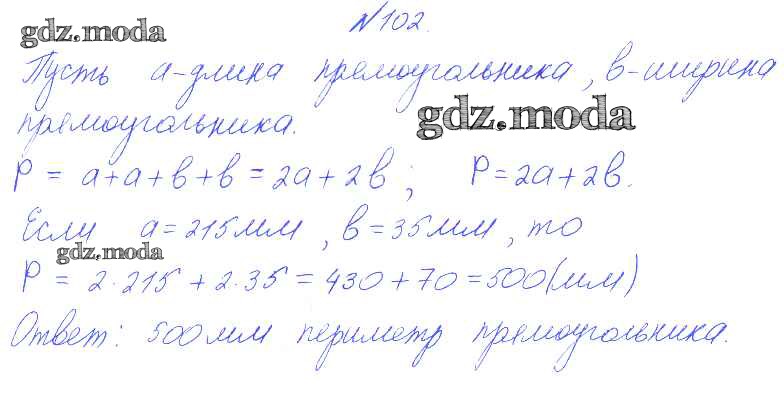 №102.
gdz.moda
Пусть а-длина прямоугольника, в-ширина
прямоугольника.
gdz.moda
P = a+a+в+в = 2a+2в; P=2a+2в.
Если a=215мм, в=35мм, то
gdz.moda
P = 2·215+2·35=430+70=500(мм)
Ответ: 500мм периметр прямоугольника.